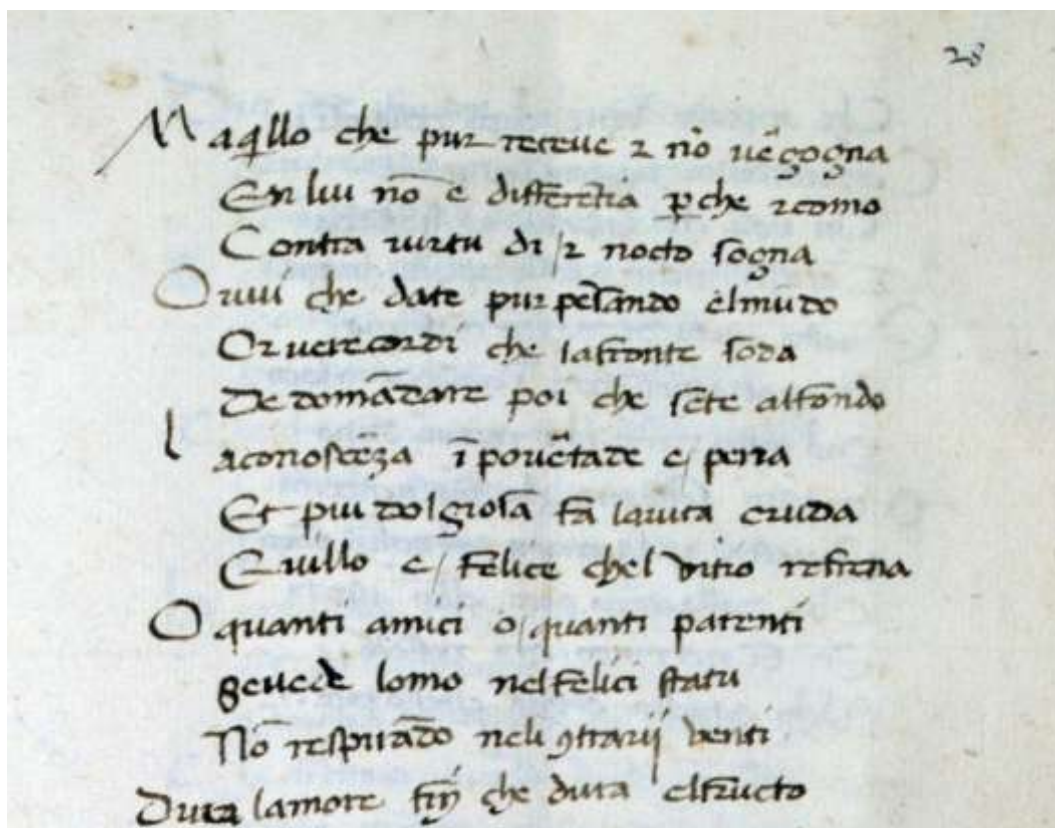 28
Ma q̄llo che pur receue ⁊ nō uēgogna
En lui nō e differētia ꝑche ⁊como
Contra uirtu di / ⁊ nocto sogna
O uui che date pur pēsando elmūdo
Or uerecordi che lafronte soda
De domādare poi che sete alfondo
l aconoscēza ī pouētade e / pena
Et piu dolgiosa fa lauita cruda
E quillo e / felice chel vitio refrena
O quanti amici o / quanti parenti
Seuede lomo nelfelici statu
Nō respirādo neli ꝯtrarij venti
Dura lamore fin che dura elfructo